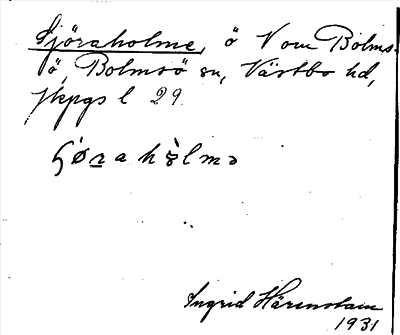 Sjöraholme, ö V om Bolms-
ö, Bolmsö sn, Västbo hd,
Jkpgs l 29.
Ingrid Härenstam
1931